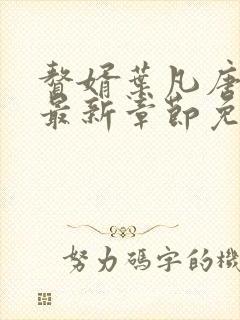 赘婿葉凡唐
最新章節免
努力碼字的機